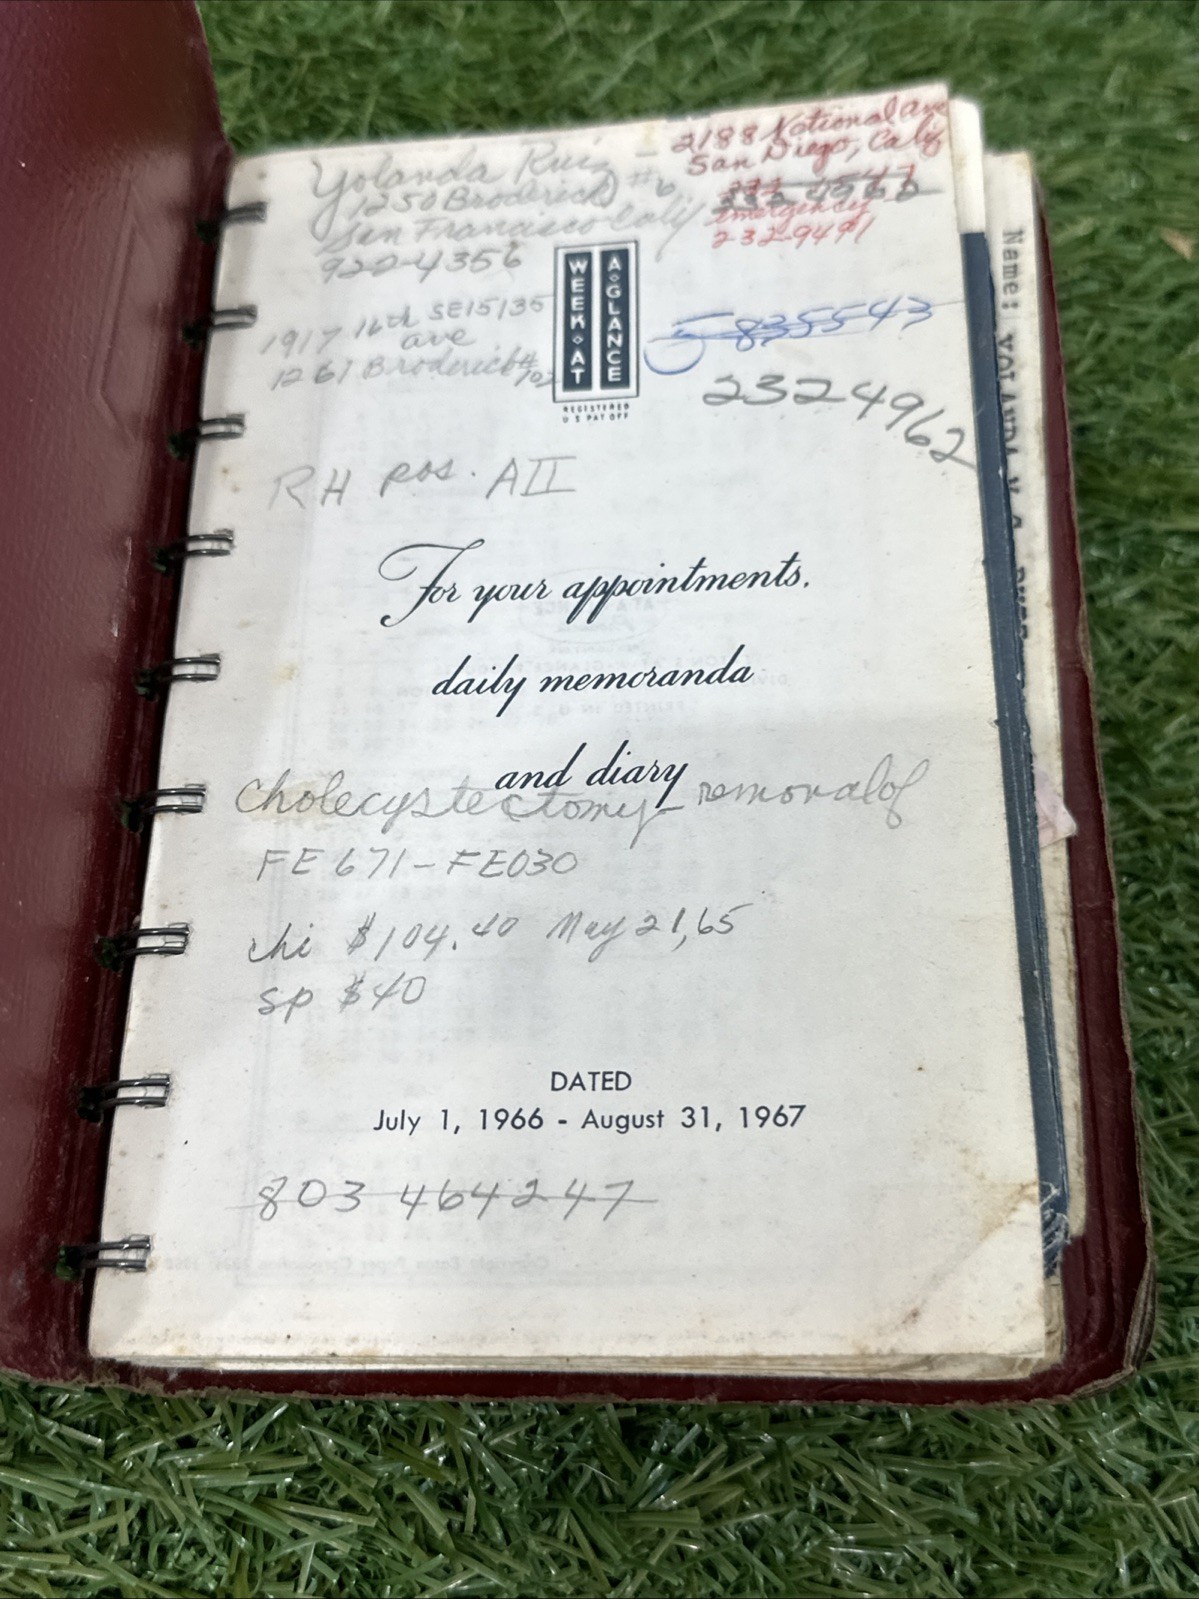 Yolanda Ruiz -
1250 Broderick #6
San Francisco Calif
922-4356
2188 National Ave
San Diego, Calif
emergency
232-9491
1917 16th SE15135
ave
1261 Broderick #
WEEK·AT
A·GLANCE
REGISTERED
U S PAT OFF
5 8355543
2324962
RH pos. AII
For your appointments,
daily memoranda
and diary
Cholecystectomy - removal of
FE 671 - FE030
chi $104.40 May 21, 65
sp $40
DATED
July 1, 1966 - August 31, 1967
803 464247
Name: YOLANDA